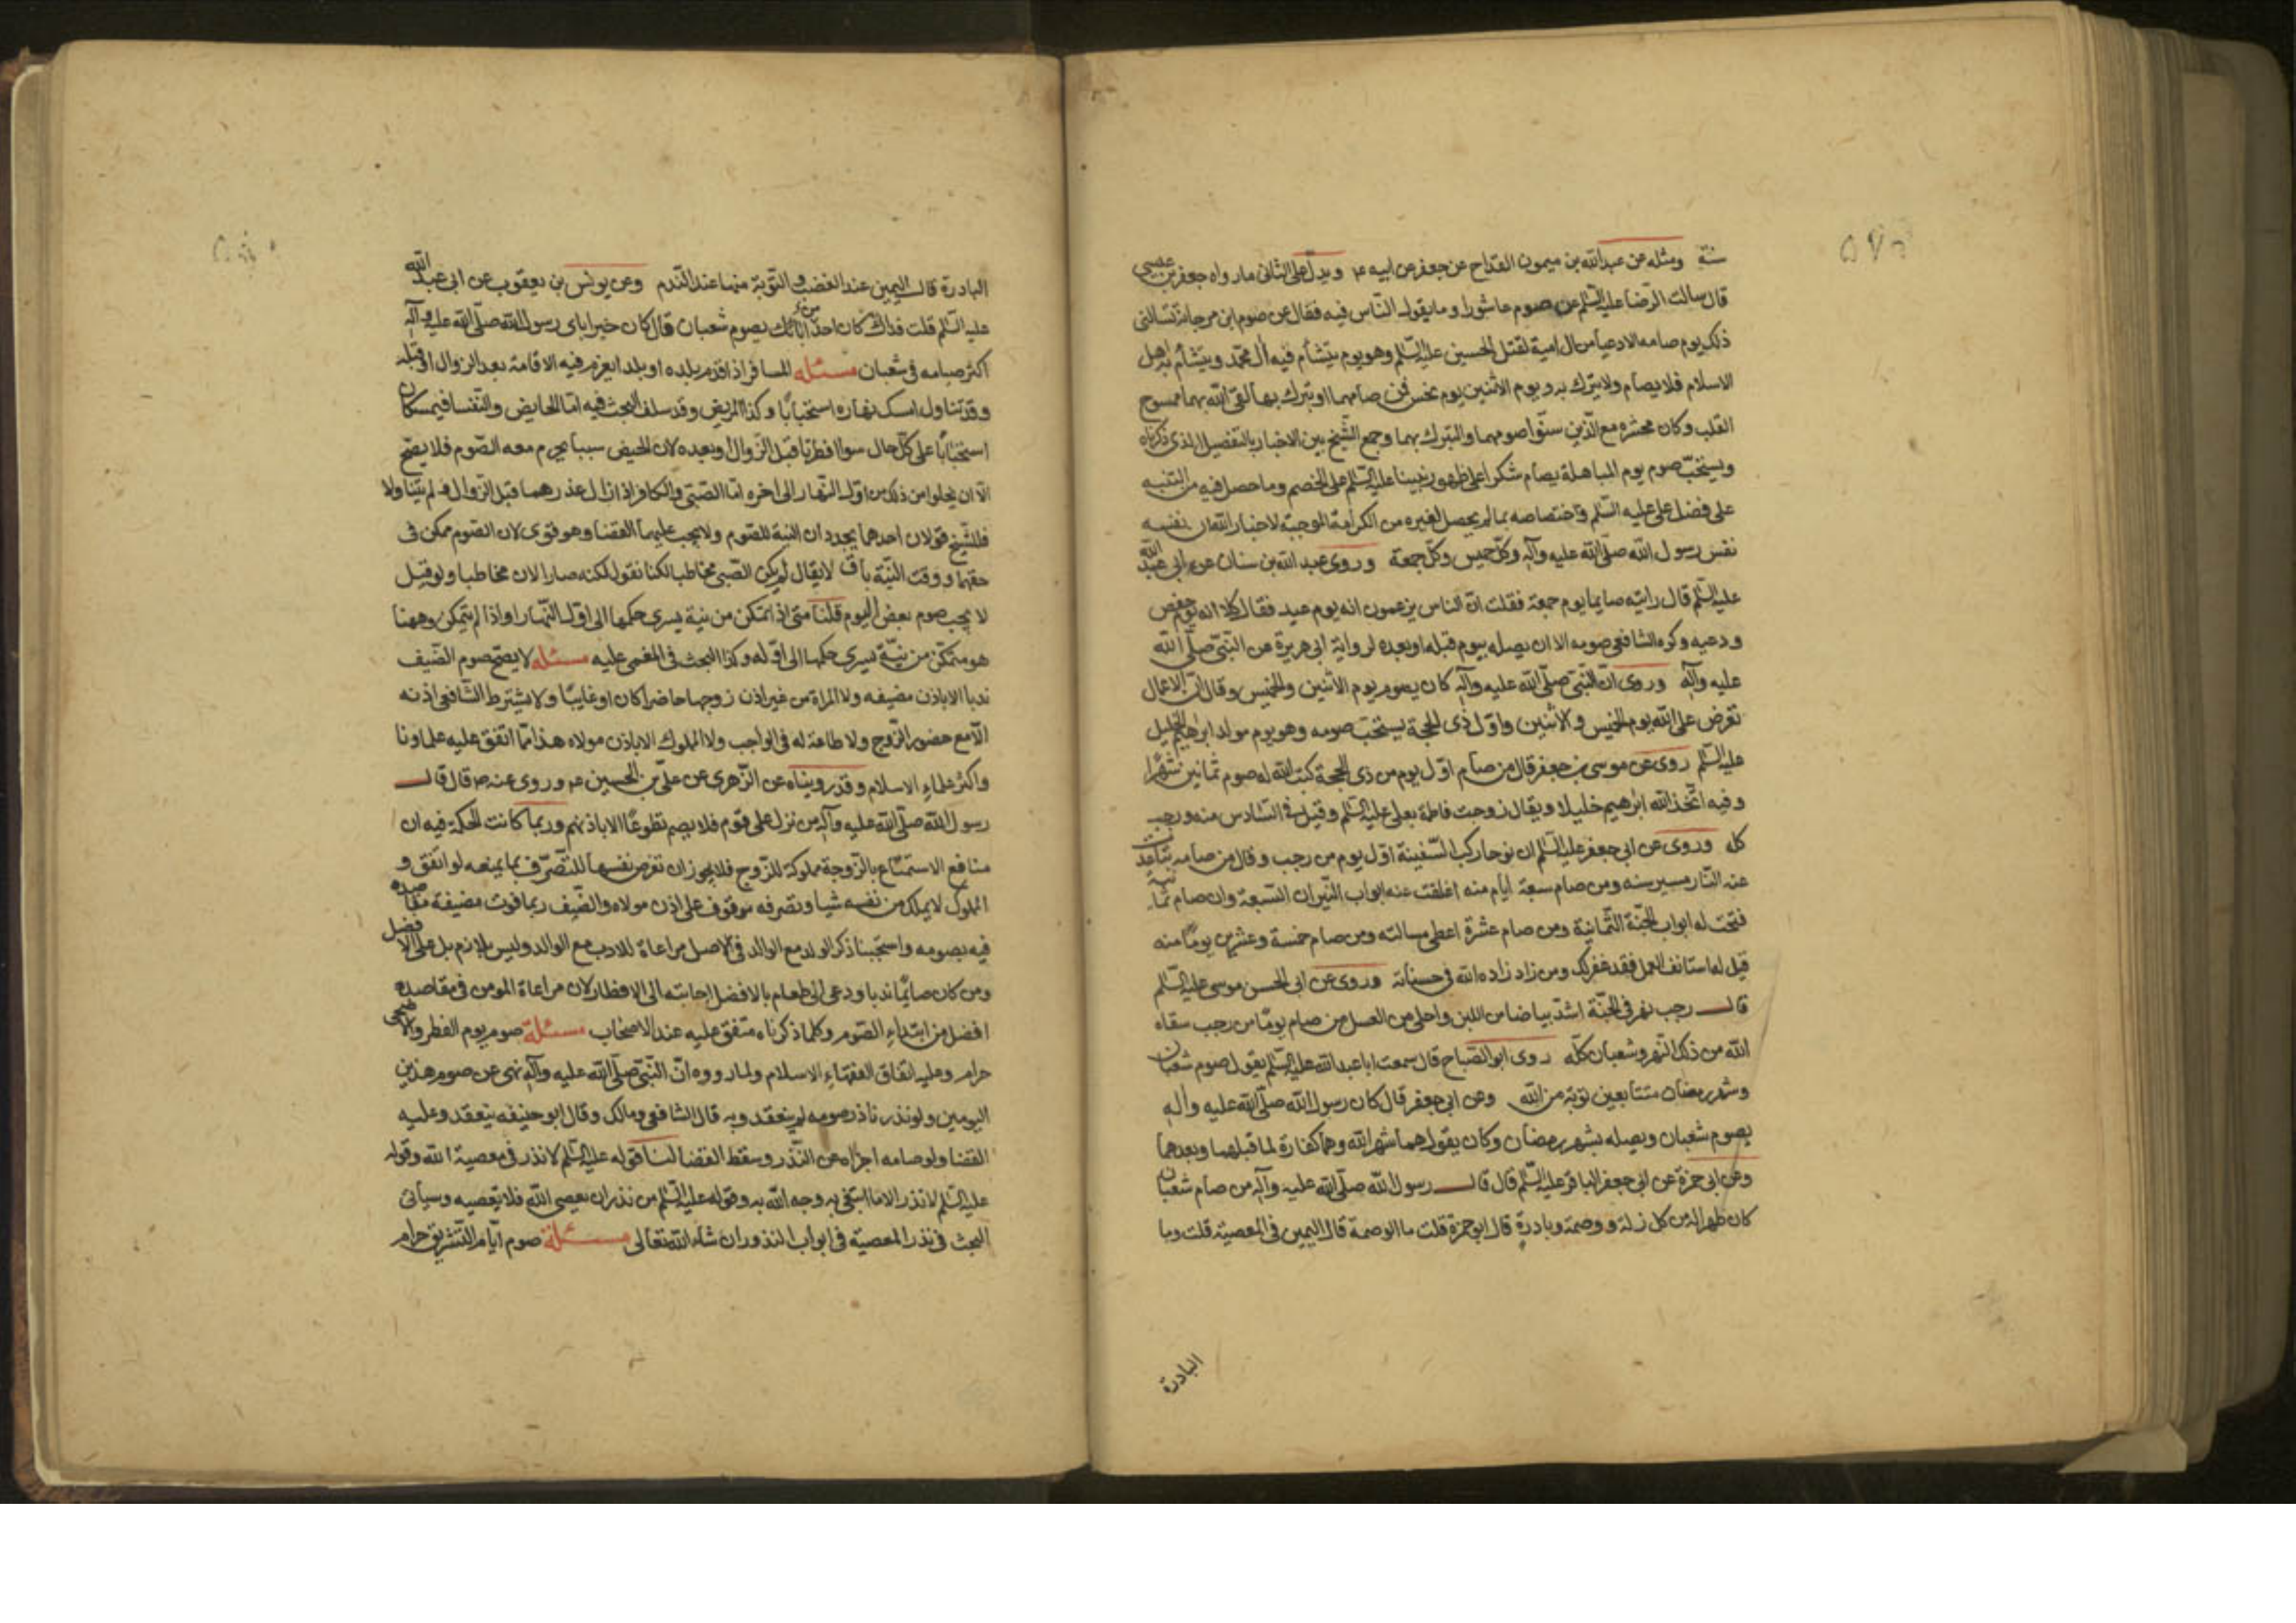 سنة ومثله عن عبدالله بن ميمون القداح عن جعفر عن ابيه ع‍ ويدل على الثانى مارواه جعفر بن عيسى
قال سالت الرضا عليه السلم عن صوم عاشورا وما يقول الناس فيه فقال عن صوم ابن مرجانة تسالنى
ذلك يوم صامه الادعيا من ال امية لقتل الحسين عليه السلم وهو يوم يتشأم فيه ال محمد ويتشأم به اهل
الاسلام فلا يصام ولا يترك به ويوم الاثنين يوم نحس فمن صامهما او تبرك بهما لقى الله بهما ممسوح
القلب وكان محشره مع الذين سنوا صومهما والتبرك بهما وجمع الشيخ بين الاخبار بالتفصيل الذى ذكرناه
ويستحب صوم يوم المباهلة يصام شكرا على ظهور نبينا عليه السلم على الخصم وما حصل فيه من التنبيه
على فضل على عليه السلم واختصاصه بما لم يحصل لغيره من الكرامة الموجبة لاخبار الله ان نفسه
نفس رسول الله صلى الله عليه وآله وكل خميس وكل جمعة وروى عبد الله بن سنان عن ابى عبد الله
عليه السلم قال رايته صايما يوم جمعة فقلت ان الناس يزعمون انه يوم عيد فقال كلا انه يوم خفض
ودعيه وكره الشافعى صومه الا ان يصله بيوم قبله او بعده لرواية ابى هريرة عن النبى صلى الله
عليه وآله وروى ان النبى صلى الله عليه وآله كان يصوم يوم الاثنين والخميس وقال ان الاعمال
تعرض على الله يوم الخميس والاثنين واول ذى الحجة يستحب صومه وهو يوم مولد ابراهيم الخليل
عليه السلم روى عن موسى بن جعفر قال من صام اول يوم من ذى الحجة كتب الله له صوم ثمانين شهرا
وفيه اتخذ الله ابراهيم خليلا ويقال زوجت فاطمة بعلى عليه السلم وقيل فى السادس منه ورجب
كله وروى عن ابى جعفر عليه السلم ان نوحا ركب السفينة اول يوم من رجب وقال من صامه تباعدت
عنه النار مسير سنه ومن صام سبعة ايام منه اغلقت عنه ابواب النيران السبعة وان صام ثمانية
فتحت له ابواب الجنة الثمانية ومن صام عشرة اعطى مسالته ومن صام خمسة وعشرين يوما منه
قيل له استانف العمل فقد غفر لك ومن زاد زاده الله فى حسناته وروى عن ابى الحسن موسى عليه السلم
قال رجب نهر فى الجنة اشد بياضا من اللبن واحلى من العسل من صام يوما من رجب سقاه
الله من ذلك النهر وشعبان كله روى ابو الصباح قال سمعت ابا عبد الله عليه السلم يقول صوم شعبان
وشهر رمضان متتابعين توبة من الله وعن ابى جعفر قال كان رسول الله صلى الله عليه وآله
يصوم شعبان ويصله بشهر رمضان وكان يقول هما شهر الله وهما كفارة لما قبلهما وبعدهما
وعن ابى حمزة عن ابى جعفر الباقر عليه السلم قال قال رسول الله صلى الله عليه وآله من صام شعبان
كان طهر اله من كل زلة ووصمة وبادرة قال ابو حمزة قلت ما الوصمة قال اليمين فى المعصية قلت وما
البادرة
البادرة قال اليمين عند الغضب والتوبة منها عند الندم وعن يونس بن يعقوب عن ابى عبد الله
عليه السلم قلت فداك كان احد من ابائك يصوم شعبان قال كان خير اباى رسول الله صلى الله عليه وآله
اكثر صيامه فى شعبان مسئله المسافر اذا قدم بلده او بلدا يعزم فيه الاقامة بعد الزوال او قبله
وقد تناول امسك نهاره استحبابا وكذا المريض وقد سلف البحث فيه اما الحايض والنفسا فيمسكان
استحبابا على كل حال سوا افطرتا قبل الزوال او بعده لان الحيض سببا يحرم معه الصوم فلا يصح
الا ان يخلوا من ذلك من اول النهار الى اخره اما الصبى والكافر اذا زال عذرهما قبل الزوال ولم يتناولا
فللشيخ قولان احدهما يجددان النية للصوم ولا يجب عليهما القضا وهو قوى لان الصوم ممكن فى
حقهما ووقت النية باق لا يقال لم يكن الصبى مخاطبا لكنا نقول لكنه صار الان مخاطبا ولو قيل
لا يجب صوم بعض اليوم قلنا متى اذا تمكن من نية يسرى حكمها الى اول النهار او اذا لم يتمكن وههنا
هو متمكن من نية يسرى حكمها الى اوله وكذا البحث فى المغمى عليه مسئله لا يصح صوم الضيف
ندبا الا باذن مضيفه ولا المراة من غير اذن زوجها حاضرا كان او غايبا ولا يشترط الشافعى اذنه
الا مع حضور الزوج ولا طاعة له فى الواجب ولا المملوك الا باذن مولاه هذا مما اتفق عليه علماونا
واكثر علماء الاسلام وقد رويناه عن الزهرى عن على بن الحسين ع‍ وروى عنه ص قال قال
رسول الله صلى الله عليه وآله من نزل على قوم فلا يصم تطوعا الا باذنهم وربما كانت الحكمة فيه ان
منافع الاستمتاع بالزوجة مملوكة للزوج فلا يجوز ان تعرض نفسها للتصرف بما يمنعه لو اتفق و
المملوك لا يملك من نفسه شيا وتصرفه موقوف على اذن مولاه والضيف ربما فوت مضيفه مقاصده
فيه بصومه واستحبنا ذكر الولد مع الوالد فى الاصل مراعاة للادب مع الوالد وليس بلازم بل على الافضل
ومن كان صايما ندبا ودعى الى طعام بالافضل اجابته الى الافطار لان مراعاة المومن فى مقاصده
افضل من ابتداء الصوم وكلما ذكرناه متفق عليه عند الاصحاب مسئلة صوم يوم الفطر والاضحى
حرام وعليه اتفاق الفقهاء الاسلام ولما رووه ان النبى صلى الله عليه وآله نهى عن صوم هذين
اليومين ولو نذر ناذر صومه لم ينعقد وبه قال الشافعى ومالك وقال ابو حنيفه ينعقد وعليه
القضا ولو صامه اجزاه عن النذر وسقط القضا لنا قوله عليه السلم لا نذر فى معصية الله وقوله
عليه السلم لا نذر الا ما ابتغى به وجه الله به وقوله عليه السلم من نذر ان يعصى الله فلا يعصيه وسياتى
البحث فى نذر المعصية فى ابواب النذور ان شاء الله تعالى مسئلة صوم ايام التشريق حرام